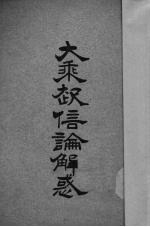 大乘起信論解惑